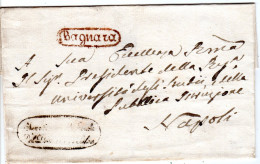 Bagnara
A Sua Eccellenza Rev̄ma
Il Sig. Presidente della Regia
Università degli Studi, e della
Pubblica Istruzione
Napoli